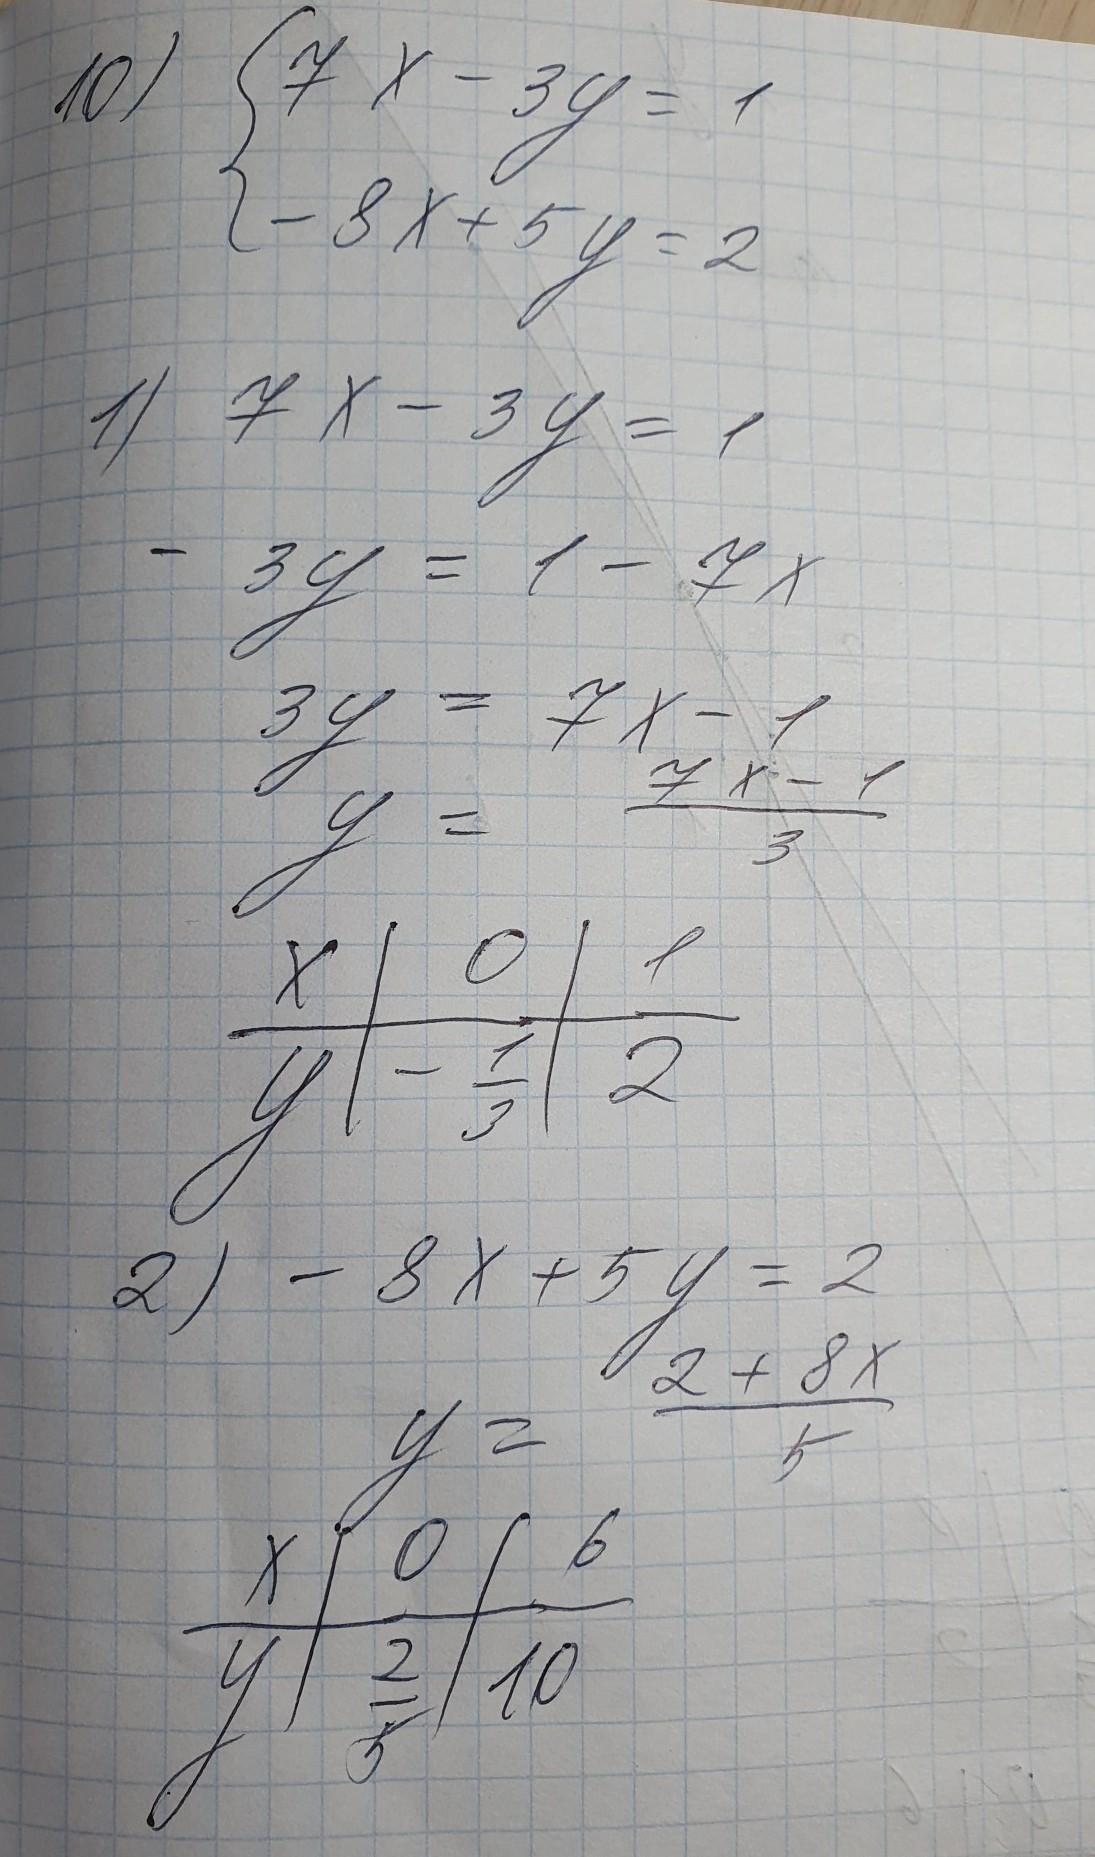 10) { 7x - 3y = 1
- 8x + 5y = 2
1) 7x - 3y = 1
- 3y = 1 - 7x
3y = 7x - 1
y = (7x - 1)/3
x | 0 | 1
y | - 1/3 | 2
2) - 8x + 5y = 2
y = (2 + 8x)/5
x | 0 | 6
y | 2/5 | 10